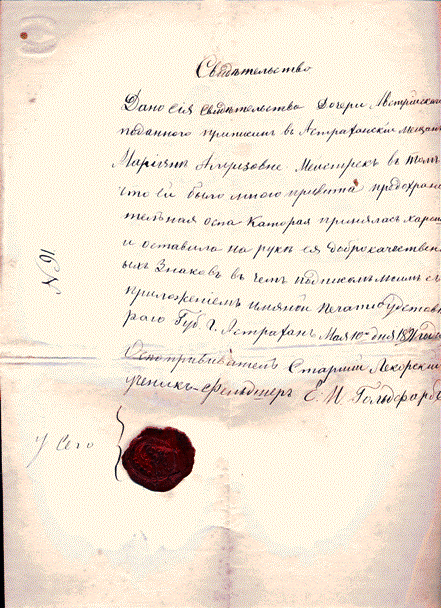 Свидѣтельство
Дано сія свидѣтельство дочери Австрійскаго
подданного приписан въ Астраханскіи мещан
Маріянн Алуизовне Меистрекъ въ томъ
что ей было мною привита предохрани
тельная оспа Каторая принялась хорошо
и оставила на руки ея доброкачествен
ыхъ Знаковъ въ чемъ подписомъ моимъ съ
приложеніемъ имянной печати удостов
раю Губ. Г. Астрахан Мая 10го дня 1891 года
Оспопрививатель Старшій Лекорскій
ученикъ-Фельдшеръ Е. И. Гольдфарбъ
N 91
У сего